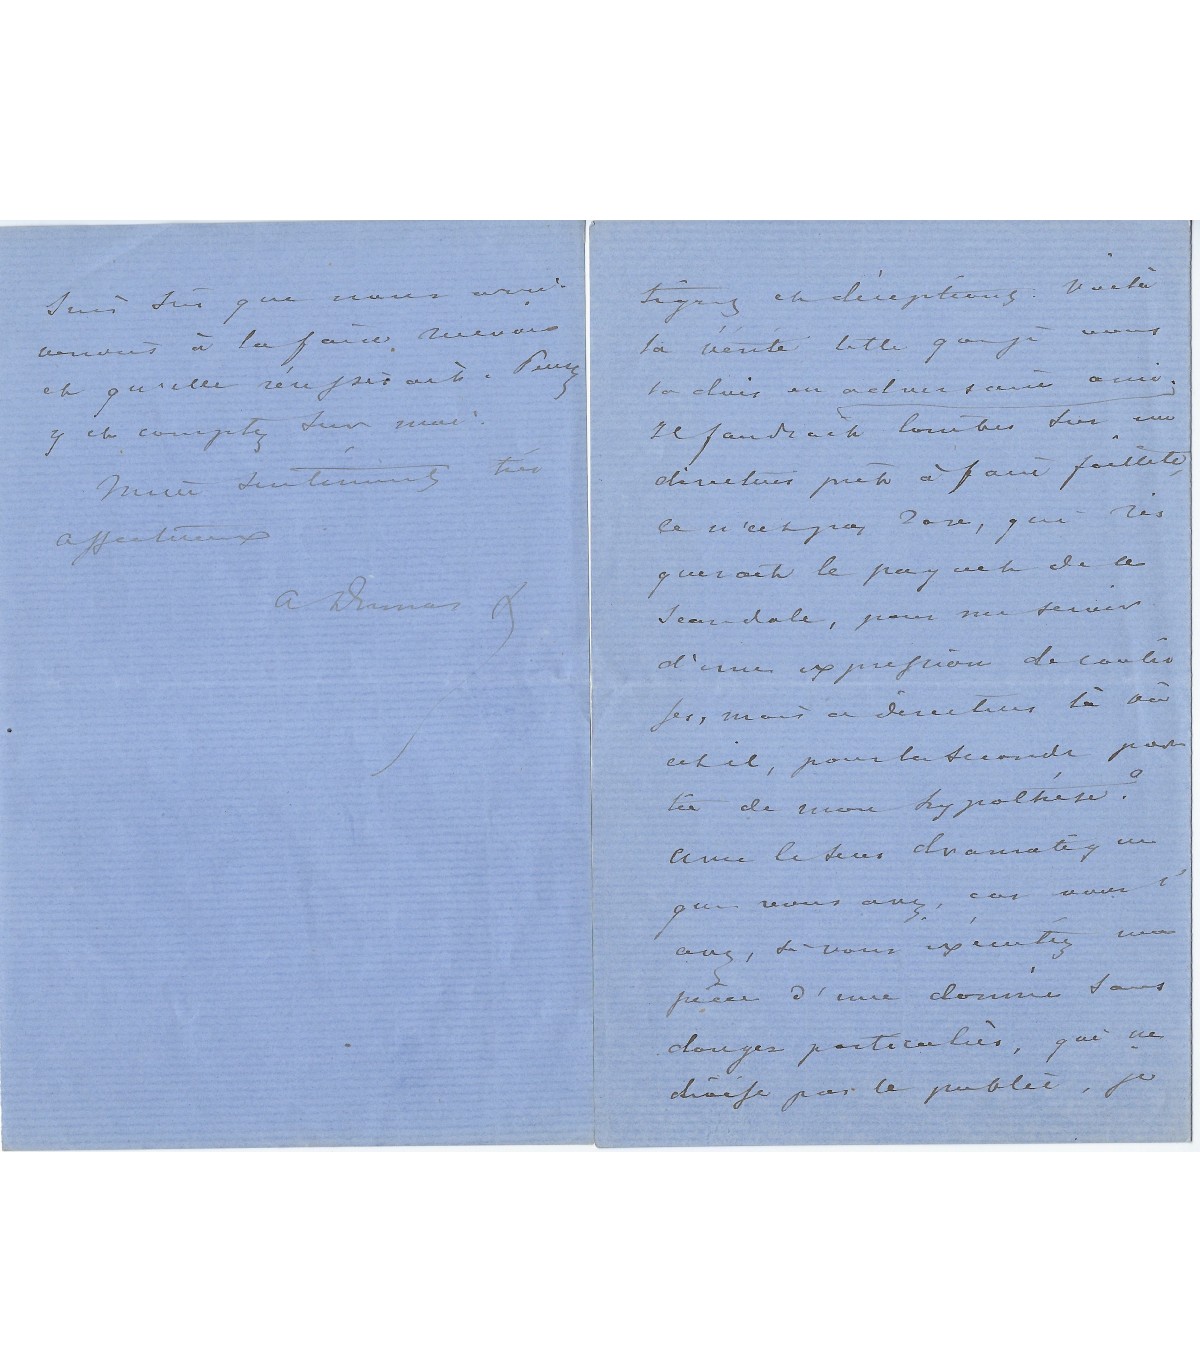 tigues et déceptions. Voilà
la vérité telle que je vous
la dois en adversaire ami.
Il faudrait tomber sur un
directeur prêt à faire faillite,
ce n'est pas rare, qui ris
querait le paquet de ce
scandale, pour me servir
d'une expression de coulis
ses, mais ce directeur là où
est il, pour la seconde par
tie de mon hypothèse?
Avec le sens dramatique
que vous avez, car vous l'
avez, si vous exécutez une
pièce d'une donnée sans
danger particulier, qui ne
divise pas le public, je
suis sûr que nous arri-
verons à la faire recevoir
et qu'elle réussirait. Pensez
y et comptez sur moi.
sentiments très
affectueux
A Dumas f